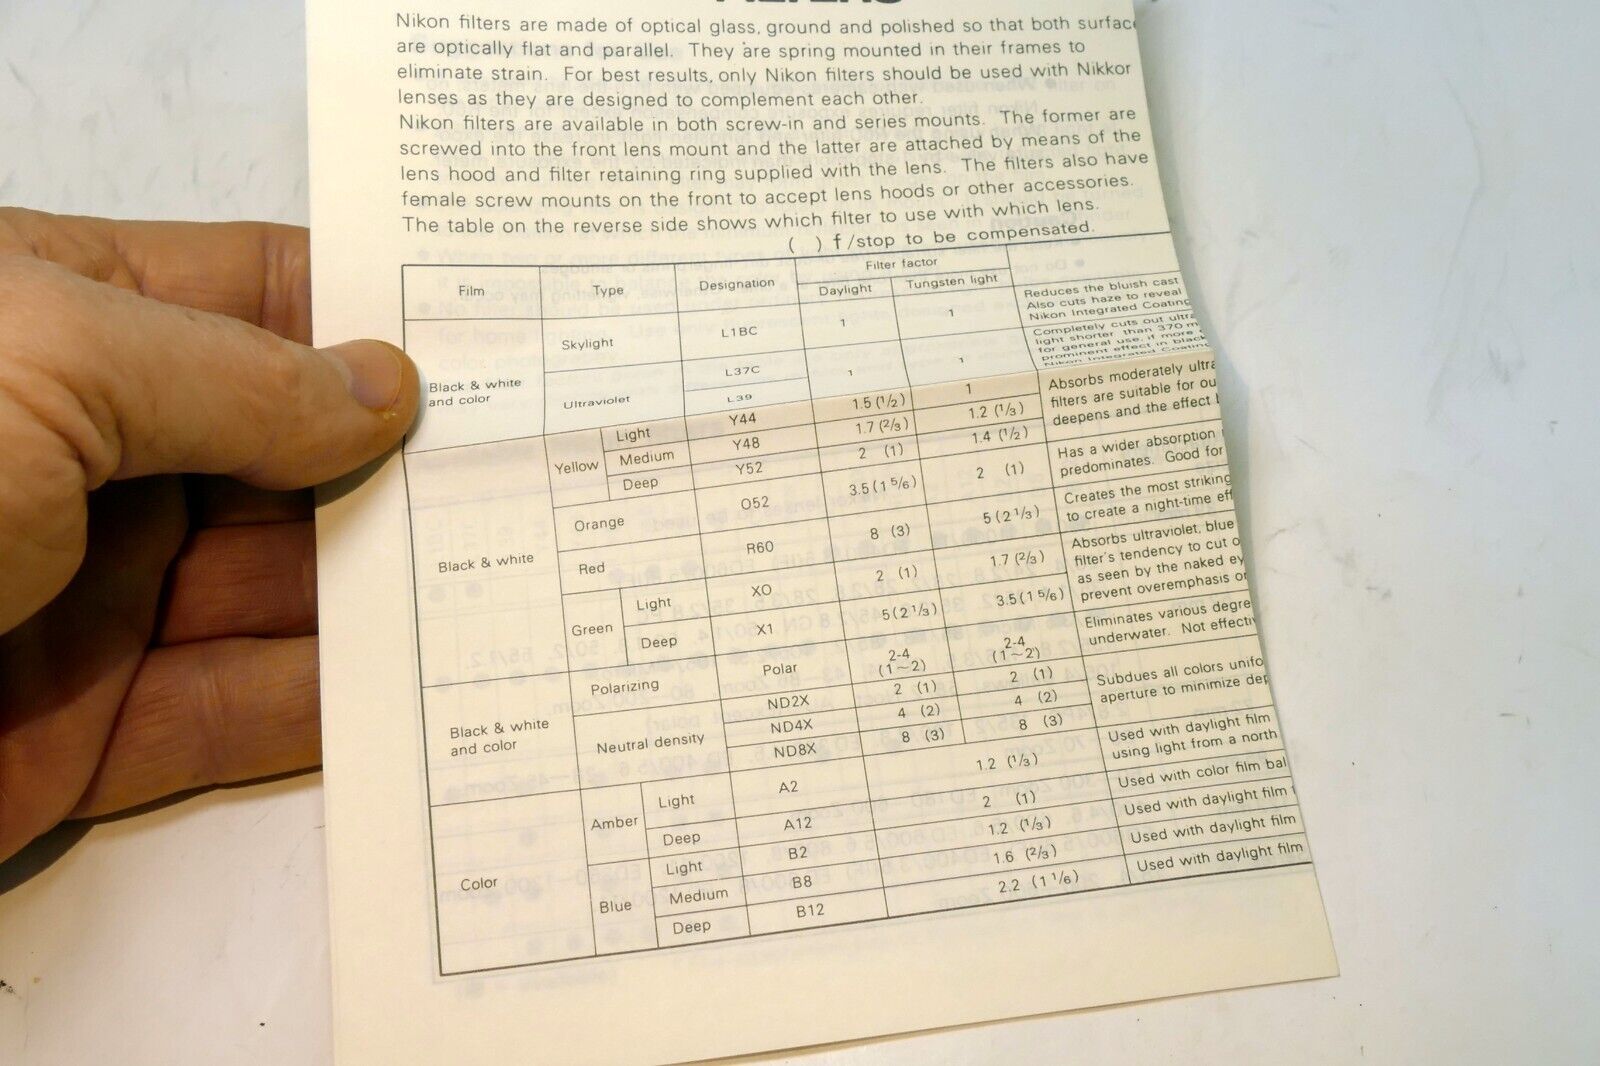 Nikon filters are made of optical glass, ground and polished so that both surfac
are optically flat and parallel. They are spring mounted in their frames to
eliminate strain. For best results, only Nikon filters should be used with Nikkor
lenses as they are designed to complement each other.
Nikon filters are available in both screw-in and series mounts. The former are
screwed into the front lens mount and the latter are attached by means of the
lens hood and filter retaining ring supplied with the lens. The filters also have
female screw mounts on the front to accept lens hoods or other accessories.
The table on the reverse side shows which filter to use with which lens.
( ) f/stop to be compensated.
Film Type Designation Filter factor
Daylight Tungsten light
Black & white
and color
Skylight L1BC 1 1
Reduces the bluish cast
Also cuts haze to reveal
Nikon Integrated Coating
Ultraviolet L37C 1 1
L39
Completely cuts out ultra
light shorter than 370 m
for general use, if more
prominent effect in black
Nikon Integrated Coating
Black & white
Yellow Light Y44 1.5 (1/2) 1
Medium Y48 1.7 (2/3) 1.2 (1/3)
Deep Y52 2 (1) 1.4 (1/2)
Absorbs moderately ultra
filters are suitable for ou
deepens and the effect
Orange O52 3.5 (1 5/6) 2 (1)
Has a wider absorption
predominates. Good for
Red R60 8 (3) 5 (2 1/3)
Creates the most striking
to create a night-time eff
Green Light X0 2 (1) 1.7 (2/3)
Deep X1 5 (2 1/3) 3.5 (1 5/6)
Absorbs ultraviolet, blue
filter's tendency to cut o
as seen by the naked ey
prevent overemphasis or
Black & white
and color
Polarizing Polar 2-4 (1~2) 2-4 (1~2)
Eliminates various degre
underwater. Not effecti
Neutral density ND2X 2 (1) 2 (1)
ND4X 4 (2) 4 (2)
ND8X 8 (3) 8 (3)
Subdues all colors unifo
aperture to minimize dep
Color
Amber Light A2 1.2 (1/3)
Used with daylight film
using light from a north
Deep A12 2 (1) Used with color film bal
Blue Light B2 1.2 (1/3) Used with daylight film
Medium B8 1.6 (2/3) Used with daylight film
Deep B12 2.2 (1 1/6) Used with daylight film